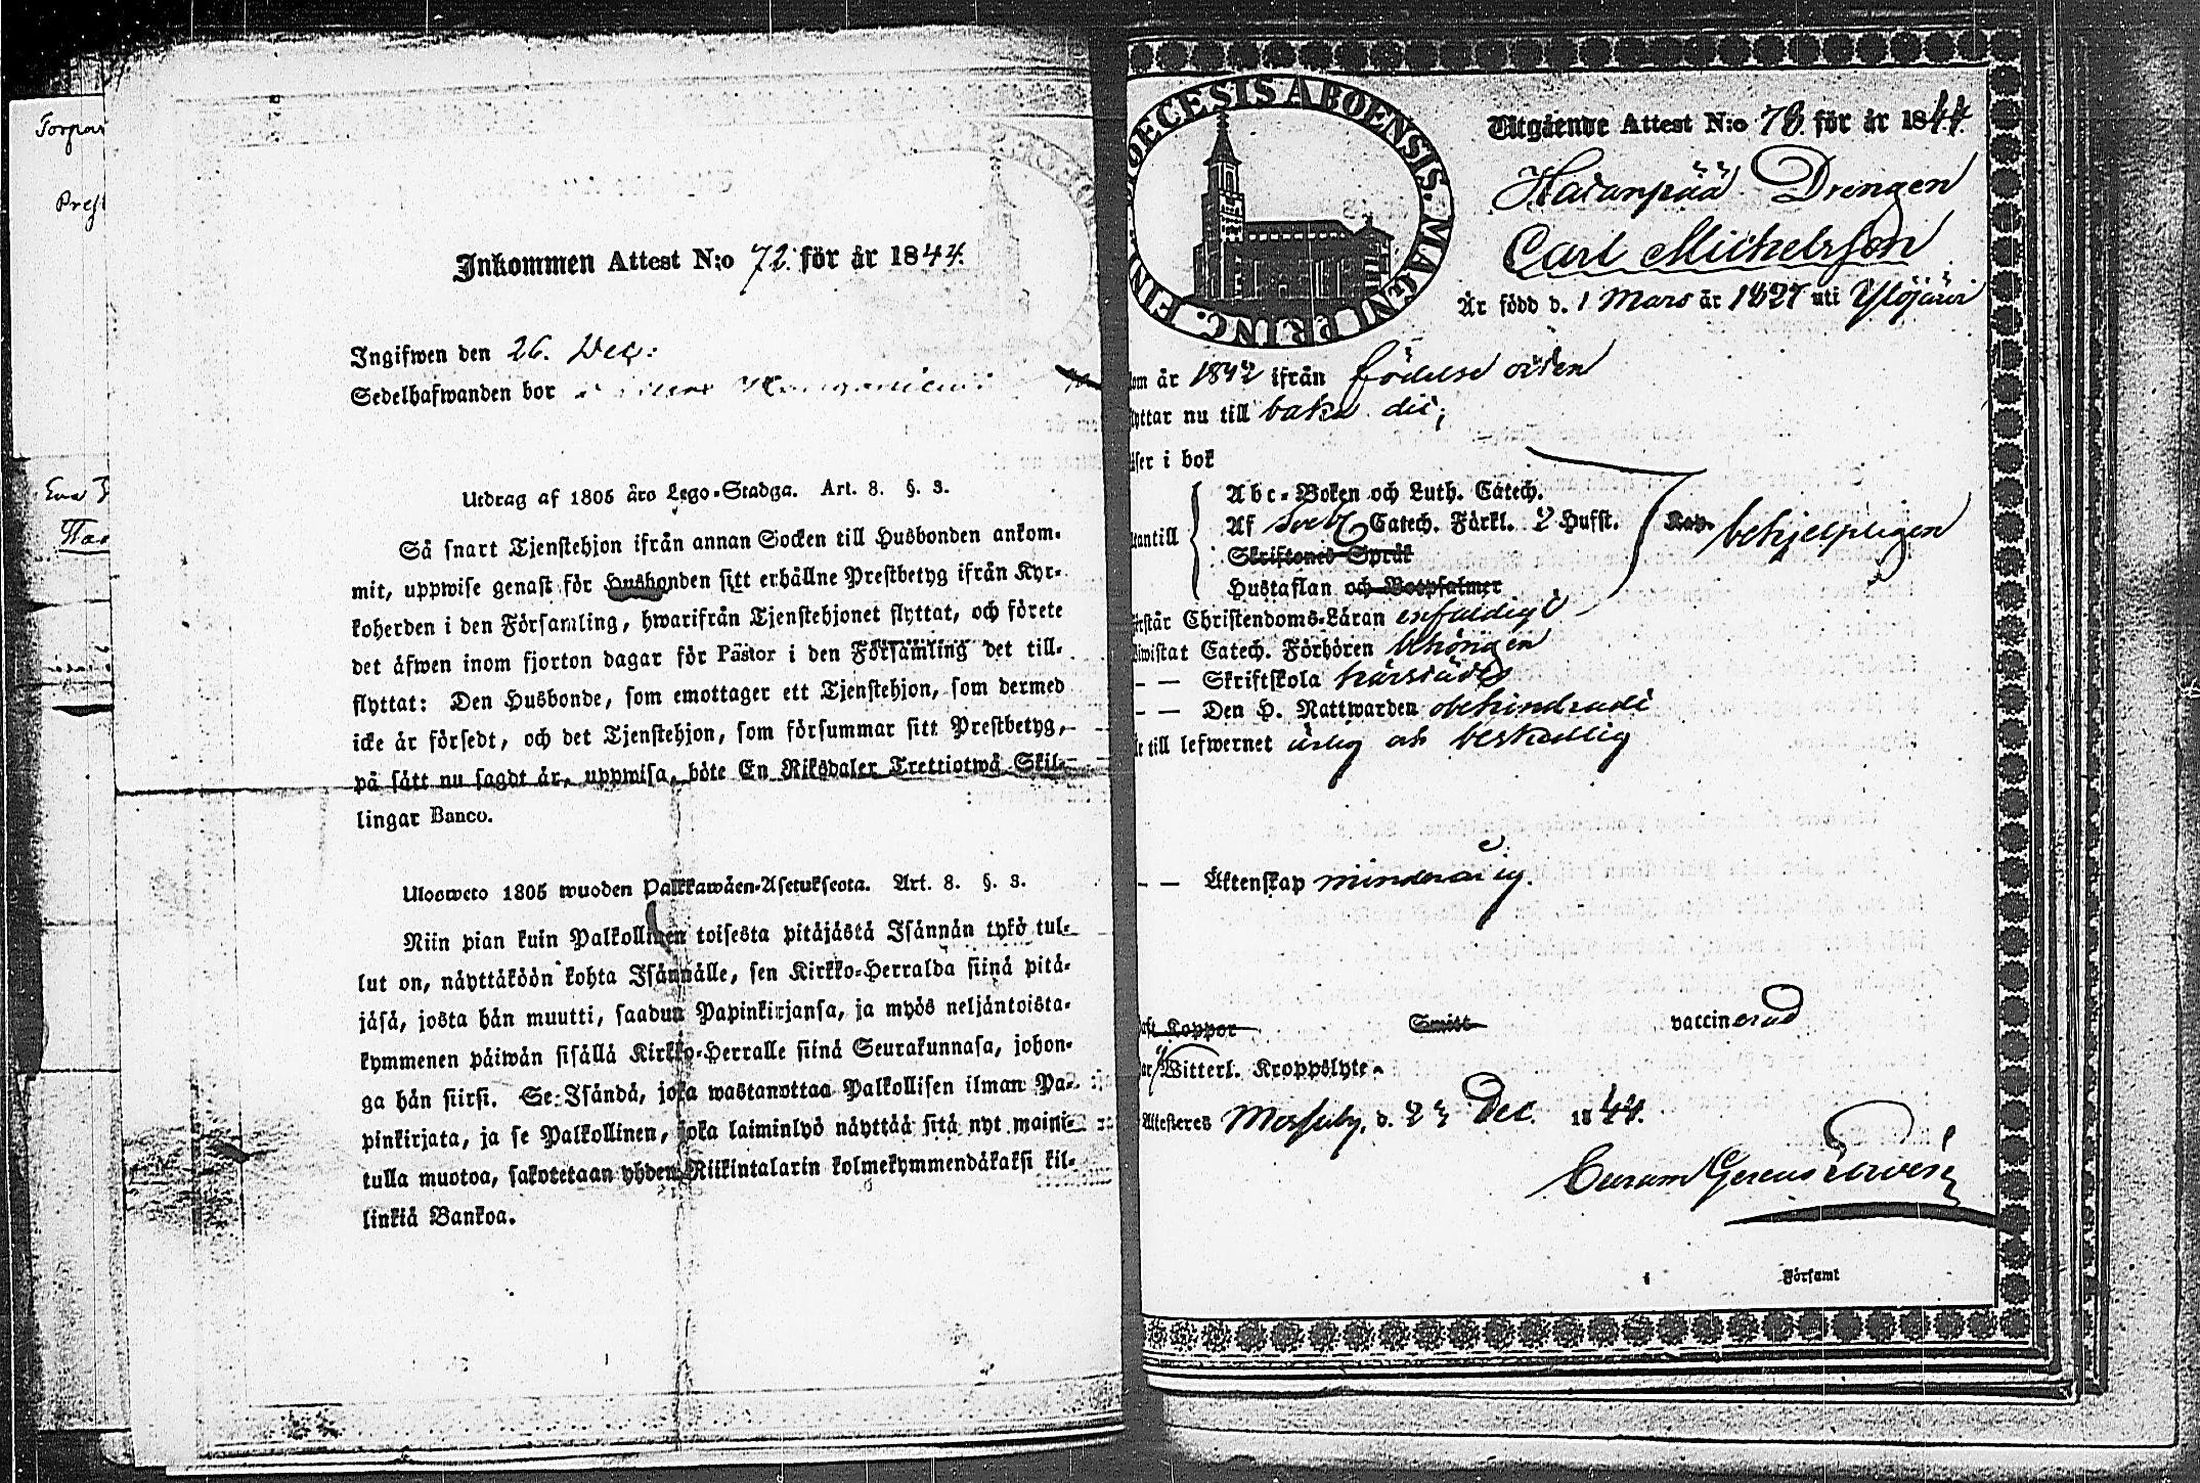 Torpar
Prest
Eva
Inkommen Attest N:o 72. för år 1844.
Ingifwen den 26. Dec:
Sedelhafwanden bor
Utdrag af 1805 års Lego-Stadga. Art. 8. §. 3.
Så snart Tjenstehjon ifrån annan Socken till Husbonden ankom-
mit, uppwise genast för Husbonden sitt erhållne Prestbetyg ifrån Kyr-
koherden i den Församling, hwarifrån Tjenstehjonet flyttat, och förete
det äfwen inom fjorton dagar för Pastor i den Församling det till-
flyttat: Den Husbonde, som emottager ett Tjenstehjon, som dermed
icke är försedt, och det Tjenstehjon, som försummar sitt Prestbetyg,
på sätt nu sagdt är, uppwisa, böte En Riksdaler Trettiotwå Skil-
lingar Banco.
Ulosweto 1805 wuoden Palkkawäen-Asetuksesta. Art. 8. §. 3.
Niin pian kuin Palkollinen toisesta pitäjästä Isännän tykö tul-
lut on, näyttäköön kohta Isännälle, sen Kirkko-Herralda siinä pitä-
jäsä, josta hän muutti, saadun Papinkirjansa, ja myös neljäntoista-
kymmenen päiwän sisällä Kirkko-Herralle siinä Seurakunnasa, johon-
ga hän siirsi. Se Isändä, joka wastanottaa Palkollisen ilman Pa-
pinkirjata, ja se Palkollinen, joka laiminlyö näyttää sitä nyt maini-
tulla muotoa, sakotetaan yhden Riikintalarin kolmekymmendäkaksi kil-
linkiä Bankoa.
DIOECESIS ABOENSIS. MAGNI PRINC. FIN
Utgående Attest N:o 78. för år 1844.
Havanpää Drengen
Carl Michelsson
Är född d. 1 Mars år 1827 uti Ylöjärvi
om år 1842 ifrån födelse orten
lyttar nu till baka dit;
äser i bok
Abc-Boken och Luth. Catech.
antill Af Sveb. Catech. Förkl. 2 Hufst. behjelpligen
Skriftenes Språk
Hustaflan och Botpsalmer
örstår Christendoms-Läran enfaldigt
Biwistat Catech. Förhören behörigen
- — Skriftskola härstädes
- — Den H. Nattwarden obehindradt
till lefwernet ärlig och beskedlig
- — Äktenskap minderårig.
aft Koppor Smitt vaccinerad
ar Witterl. Kroppslyte
Attesteres Mossuby, d. 23 Dec. 1844.
Curam Gerens
Församl